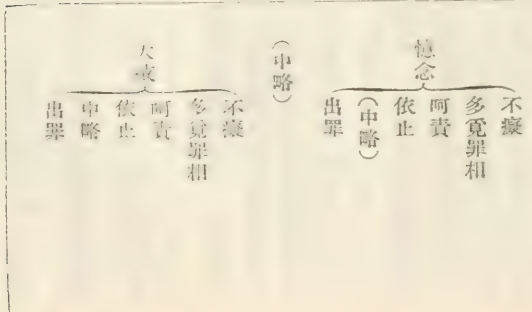 憶念
不癡
多覓罪相
呵責
依止
(中略)
出罪
(中略)
不癡
多覓罪相
呵責
依止
中略
出罪